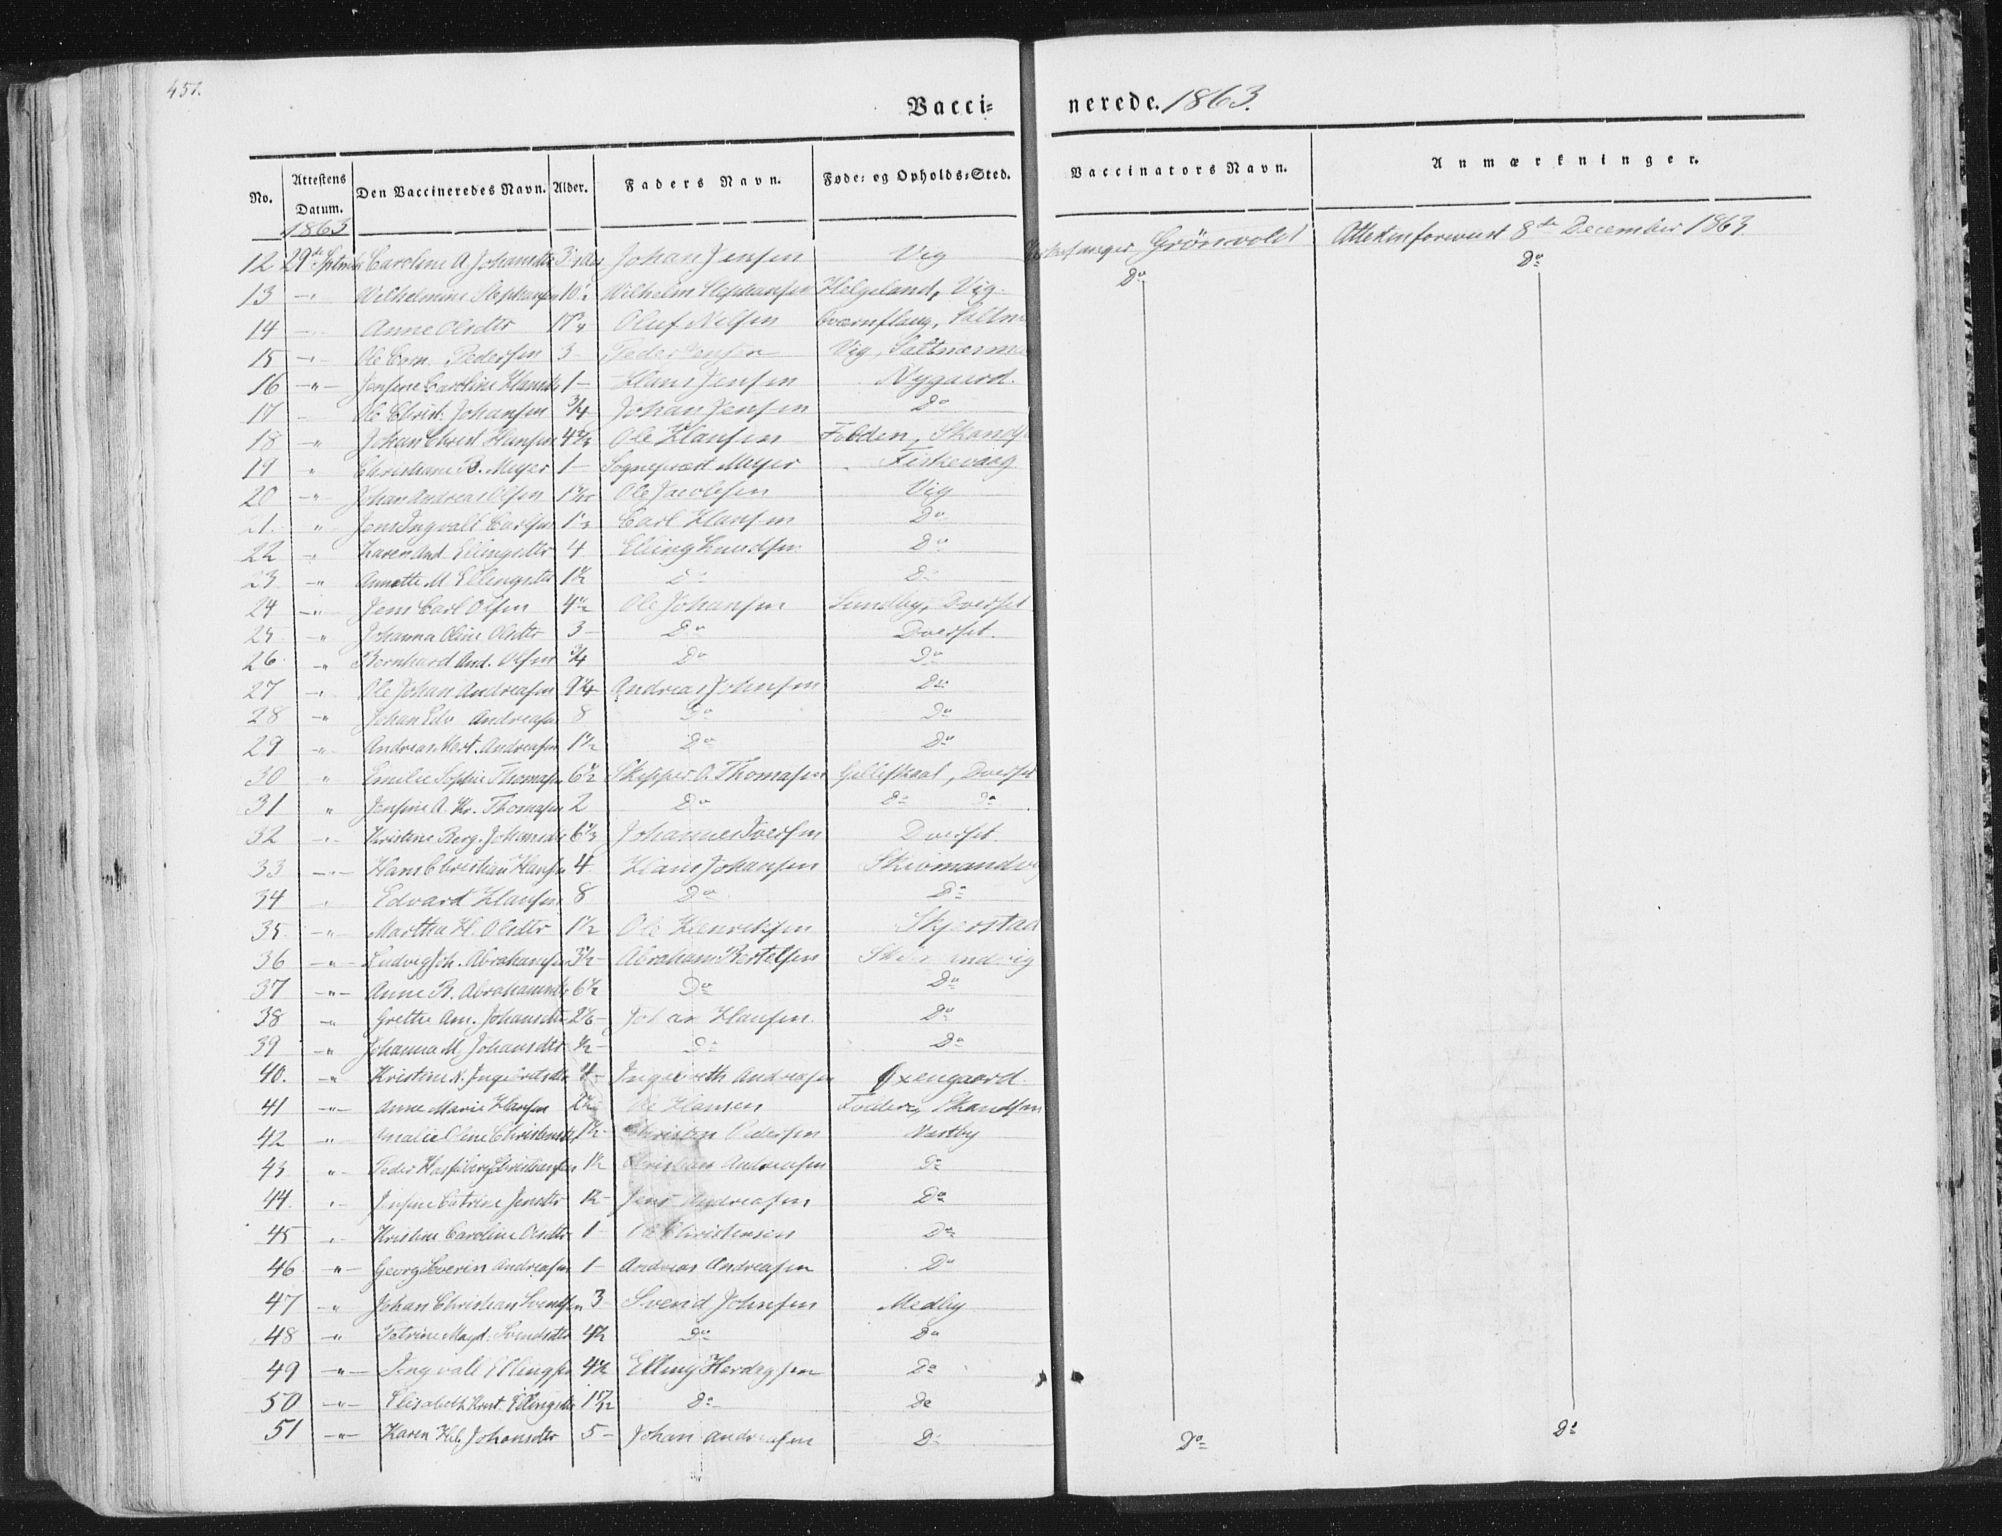 451.
Vacci= nerede. 1863.
No. Attestens Datum. Den Vaccineredes Navn. Alder. Faders Navn. Føde= og Opholds=Sted. Vaccinators Navn. Anmærkninger.
1863
12 29de Caroline A Johansdtr Johan Jensen Vig Grönvold 8de December 1863
13 -"- Wilhelmine Stephansen 10½ Wilhelm Stephansen Helgeland, Vig. Do Do
14 Anne Olsdtr Oluf Nilsen
15 -"- Ole Corn. Pedersen 3 Peder Jensen Vig,
16 -"- Jensine Caroline Hansdtr 1 - Hans Jensen Nygaard.
17 Ole Christ. Johansen ¾ Johan Jensen Do
18 -" Johan Christ Hansen Ole Hansen Folden,
19 " Christiane B. Meyer 1 - Sogneprest Meyer Fiskevaag
20 -" Johan Andreas Olsen Ole Jacobsen Vig
21 " Jens Ingvalt Carlsen Carl Hansen Do
22 -" Karen And. Ellingsdtr 4 Elling Knudsen Do
23 -" Annette M Ellingsdtr 1½ Do Do
24 -"- Jens Carl Olsen 4½ Ole Johansen Sundby, Dverset
25 " Johanna Oline Olsdtr 3 - Do Dverset.
26. -" Bernhard And. Olsen ¾ Do Do
27 -" Ole Johan Andreasen 9¼ Andreas Johnsen Do
28 -" Johan Edv Andreasen 8 Do Do
29 -" Andreas Mart. Andreasen 1½ Do Do
30 " Emilie Sophie Thomasen 6½ Skipper O. Thomasen Gilleskaal, Dverset
31 " Jensine A. Kr. Thomasen 2 Do Do Do
32 -"- Kristine Berg. Johansdtr Johannes Iversen Dverset.
33 -"- Hans Christian Hansen 4 Hans Johansen
34 " Edvard Hansen 8 Do Do
35 -"- Martha H. Olsdtr 1½ Ole Henriksen Skjerstad
36 -"- Ludvig Joh. Abrahamsen 3½ - Abraham Bertelsen
37 -"- Anne B. Abrahamsdtr 6½ Do Do
38 -" Grethe Am. Johansdtr Johan Hansen. Do
39 -" Johanna M. Johansdtr ½ - Do Do
40. -" Kristine Ingebretsdtr Andreasen Øxengaard.
41 -"- Anne Marie Hansen Ole Hansen
42 " Amalie Oline Christensdtr Christen Pedersen Nartby
43 " Peder Christiansen 1½ Christian Andreasen Do
44. -" Jensine Catrine Jensdtr 1½ - Jens Andreasen Do
45 " Kristine Caroline Olsdtr 1 - Ole Christensen Do
46 -"- Georg Severin Andreasen 1 - Andreas Andreasen Do
47 -" Johan Christian Svendsen 3 - Svend Johnsen Medby
48 -" Petrine Magd. Svendsdtr 4½ Do Do
49 -"- Ingvalt Ellingsen 4½ Elling Do
50 -"- Elisabeth Krist. Ellingsdtr Do Do
51 -"- Karen Johansdtr 5 - Johan Andreasen Do Do Do